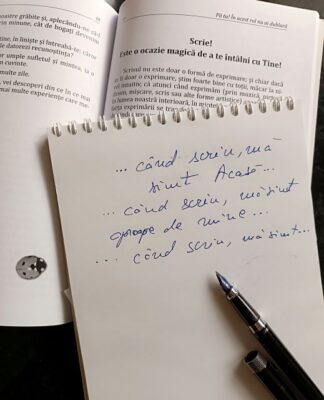 noastre grăbite și, aplecându-ne
minute, cât de bogați devenim
în liniște și întreabă-te: căror
datorezi recunoștință?
umple sufletul și mintea, ia o
cuvinte.
multe zile.
vei descoperi din ce în ce mai
multe experiențe care me-
Fii tu! În acest rol nu ai dublură
Scrie!
Este o ocazie magică de a te întâlni cu Tine!
Scrisul nu este doar o formă de exprimare; și chiar dacă
doar o exprimare, știm foarte bine cu toții, măcar la ni-
vel intuitiv, că atunci când exprimăm (prin muzică,
mișcare, scris sau alte forme artistice)
lumea noastră interioară, în
exprimării se
... când scriu, mă
simt Acasă...
... când scriu, mă simt
aproape de mine...
... când scriu, mă simt...